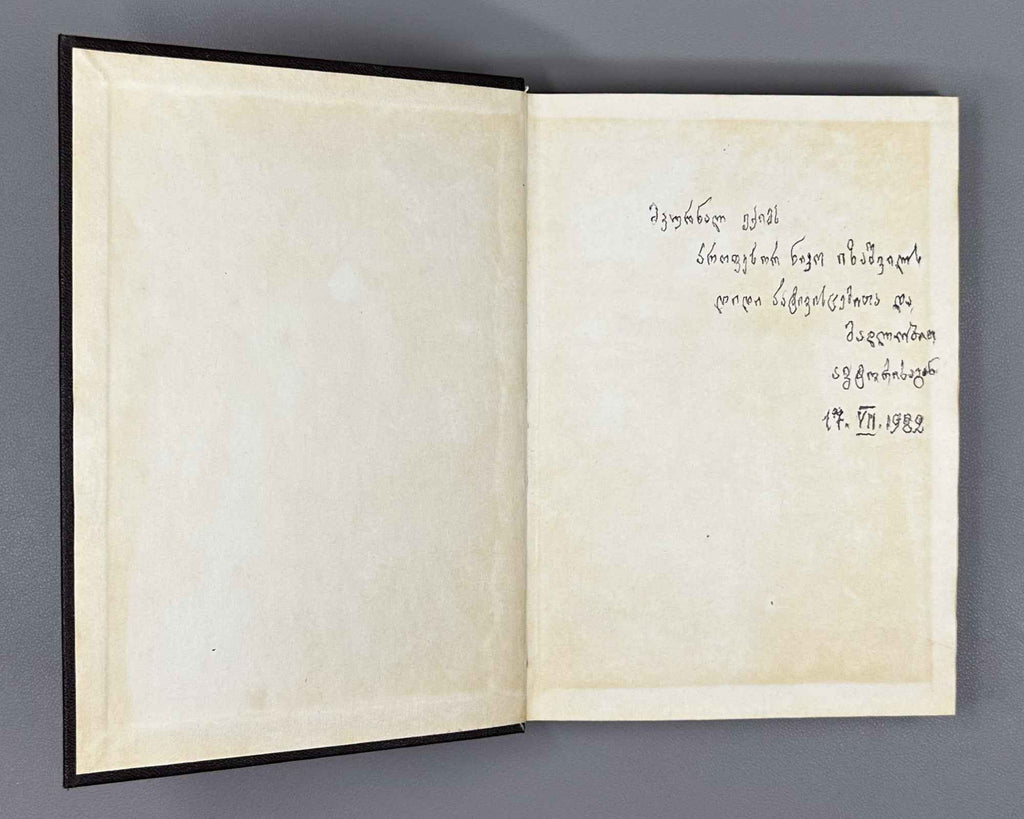 მკურნალ ექიმს
პროფესორ ნიკო იზაშვილს
დიდი პატივისცემითა და
მადლობით
ავტორისაგან
17. VII. 1982